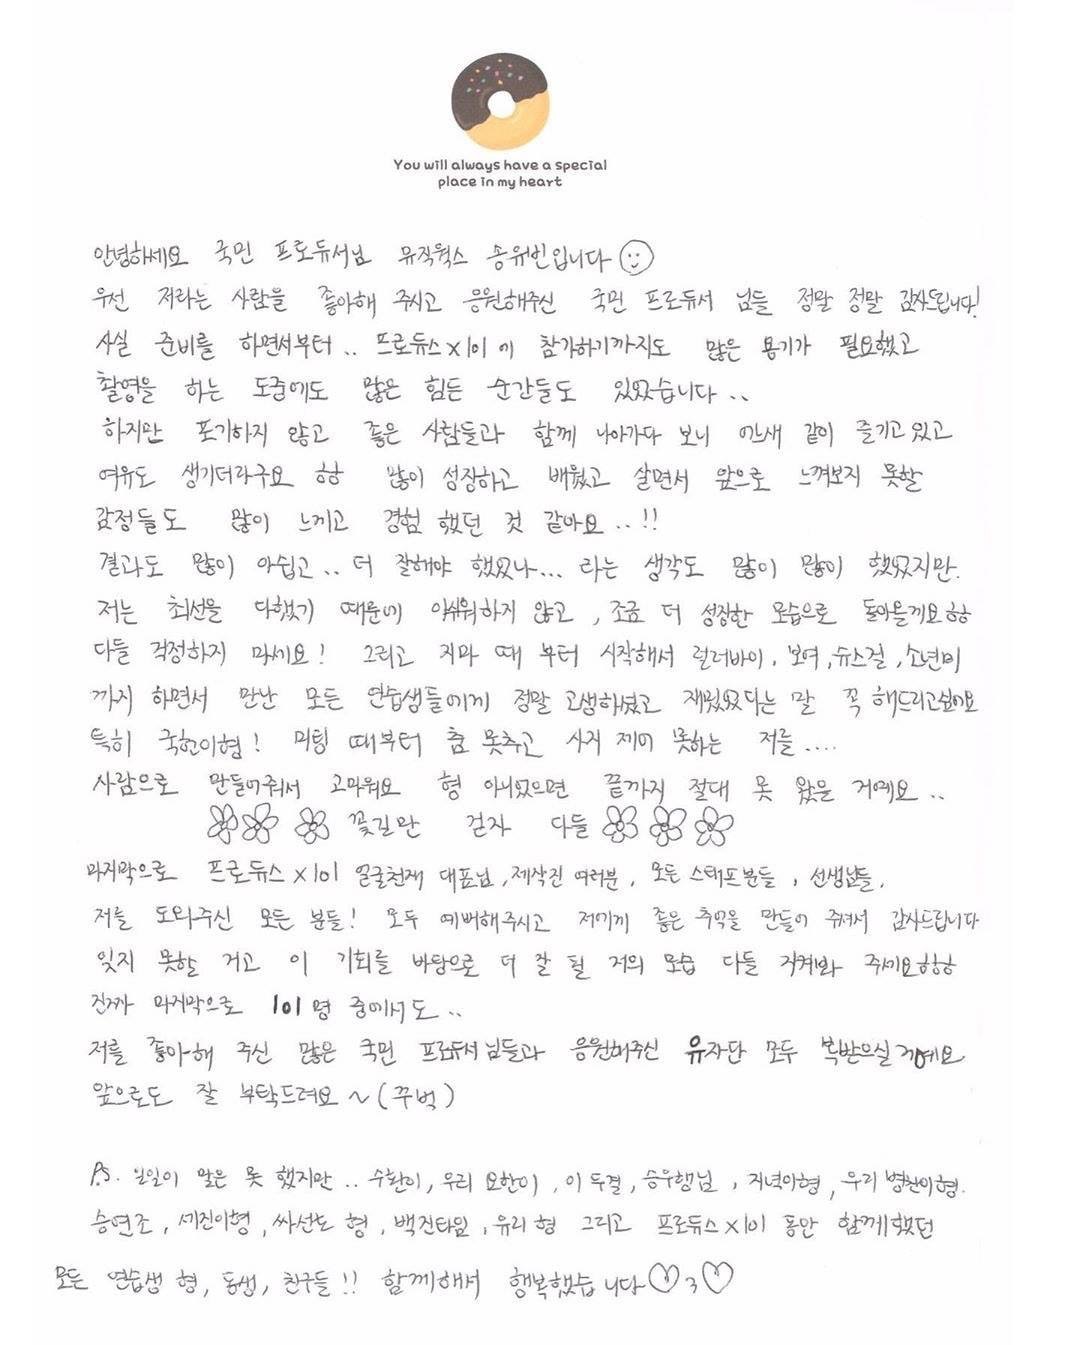 You will always have a special
place in my heart
안녕하세요 국민 프로듀서님 뮤직웍스 송유빈입니다
우선 저라는 사람을 좋아해 주시고 응원해주신 국민 프로듀서 님들 정말 정말 감사드립니다!
사실 준비를 하면서부터.. 프로듀스x101 이 참가하기까지도 많은 용기가 필요했고
촬영을 하는 도중에도 많은 힘든 순간들도 있었습니다..
하지만 포기하지 않고 좋은 사람들과 함께 나아가다 보니 어느새 같이 즐기고 있고
여유도 생기더라구요 ㅎㅎ 많이 성장하고 배웠고 살면서 앞으로 느껴보지 못할
감정들도 많이 느끼고 경험 했던 것 같아요..!!
결과도 많이 아쉽고.. 더 잘해야 했었나... 라는 생각도 많이 많이 했었지만.
저는 최선을 다했기 때문에 아쉬워하지 않고, 조금 더 성장한 모습으로 돌아올께요ㅎㅎ
다들 걱정하지 마세요! 그리고 지마 때 부터 시작해서 럴러바이, 보여, 뉴스걸, 소년미
까지 하면서 만난 모든 연습생들에게 정말 고생하셨고 재밌었다는 말 꼭 해드리고싶어요
특히 국헌이형! 미팅 때부터 춤 못추고 사귀 제이 못하는 저를....
사람으로 만들어줘서 고마워요 형 아니었으면 끝까지 절대 못 왔을 거예요..
꽃길만 걷자 다들
마지막으로 프로듀스x101 얼굴천재 대표님, 제작진 여러분, 모든 스태프분들, 선생님들,
저를 도와주신 모든 분들! 모두 예뻐해주시고 저에게 좋은 추억을 만들어 주셔서 감사드립니다
잊지 못할 거고 이 기회를 바탕으로 더 잘 될 저의 모습 다들 지켜봐 주세요ㅎㅎㅎ
진짜 마지막으로 101명 중에서도..
저를 좋아해 주신 많은 국민 프로듀서님들과 응원해주신 유자단 모두 복받으실거예요
앞으로도 잘 부탁드려요~(꾸벅)
P.S. 일일이 말은 못 했지만.. 수환이, 우리 요한이, 이 두결, 승우행님, 지녁이형, 우리 병찬이형.
승연조, 세진이형, 싸선도 형, 백진타임, 유리 형 그리고 프로듀스x101 동안 함께했던
모든 연습생 형, 동생, 친구들!! 함께해서 행복했습니다♡3♡